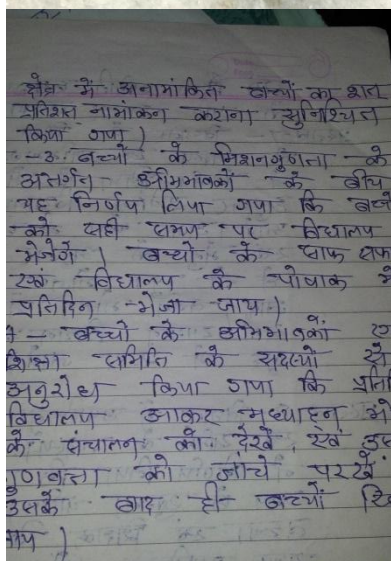 क्षेत्र में अनामांकित बच्चों का शत
प्रतिशत नामांकन कराना सुनिश्चित
किया गया।
-3. बच्चों के मिशनगुणता के
अतर्गत अभिभावकों के बीच
यह निर्णय लिया गया कि बच्चे
को सही समय पर विद्यालय
भेजेगें। बच्चो के साफ सफ
एवं विद्यालय के पोषाक में
प्रतिदिन भेजा जाय।
- बच्चो के अभिभावकों ए
शिक्षा समिति के सदस्यो से
अनुरोध किया गया कि प्रति
विद्यालय आकर मध्याहन भो
के संचालन को देखें, एवं उस
गुणवत्ता को जांचे परखें
उसके बाद ही बच्चों खि
जाय।